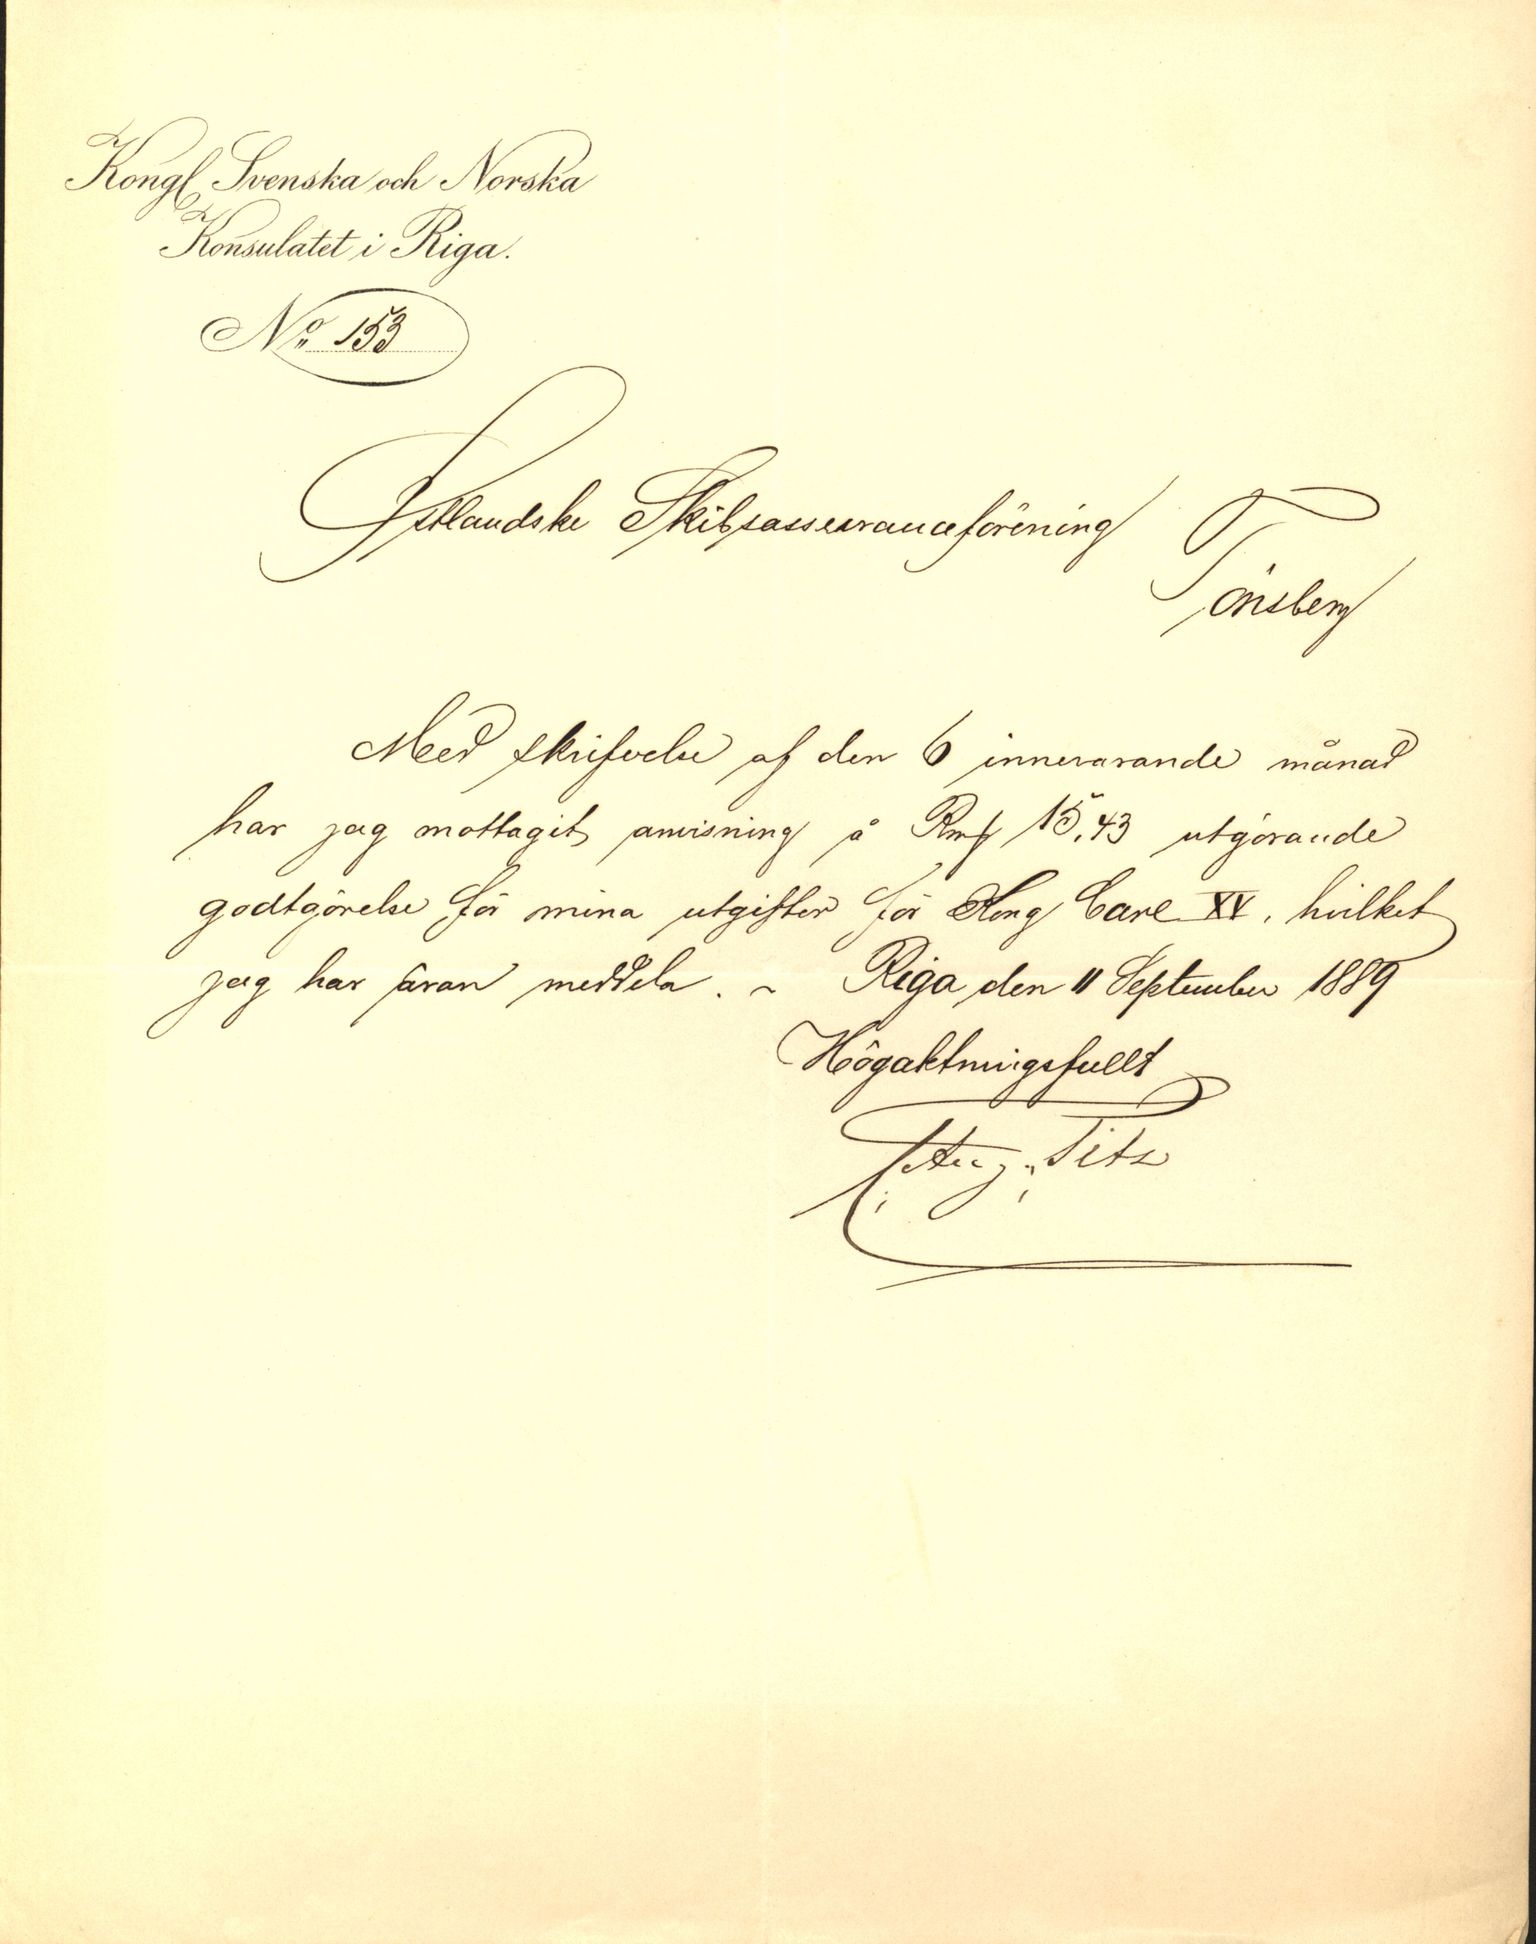 Kongl. Svenska och Norska
Konsulatet i Riga.
No 153
Østlandske Skibsassuranceförening
Tönsberg
Med skrifvelse af den 6 innevarande månad
har jag mottagit anvisning å Rmk 15.43 utgörande
godtgörelse för mina utgifter för Kong Carl XV, hvilket
jag har äran meddela. ~ Riga den 11 September 1889
Högaktningsfullt